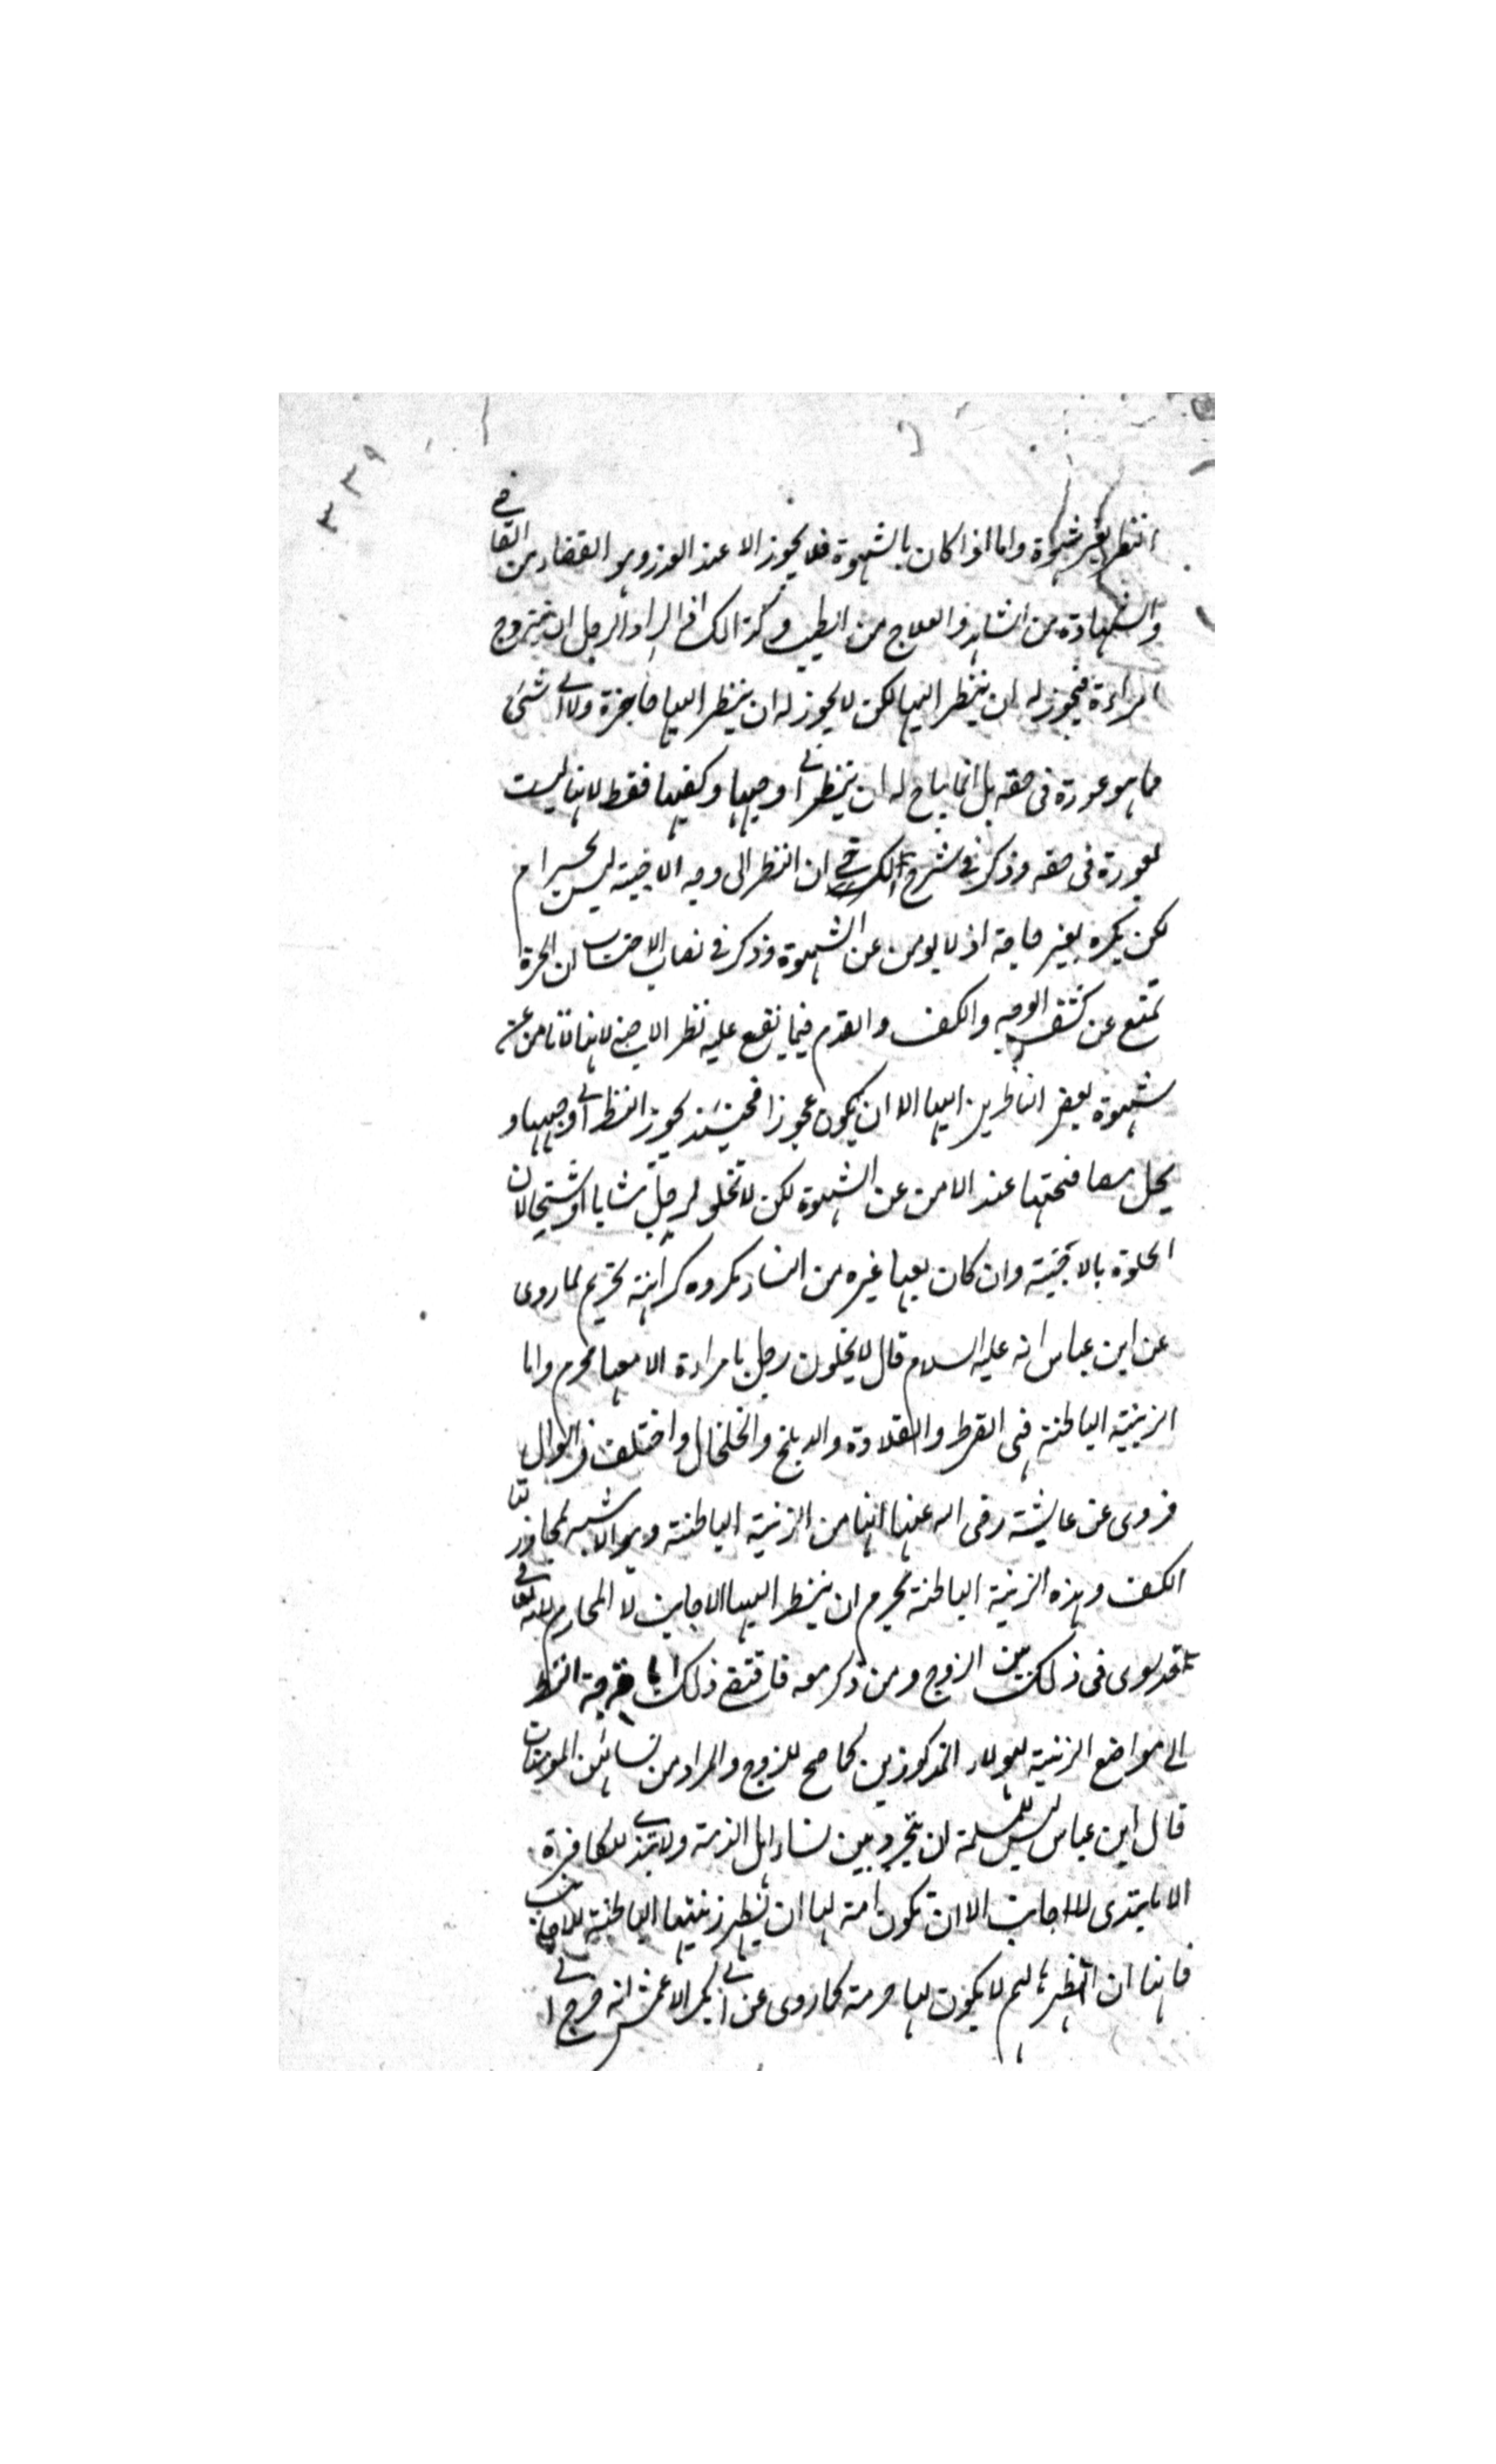 ٣٣٩
النظر بغير شهوة واما اذا كان بالشهوة فلا يجوز الا عند العذر وهو القضاء من القاضي
والشهادة من الشاهد والعلاج من الطبيب وكذالك اذا اراد الرجل ان يتزوج
امراءة فيجوز له ان ينظر اليها لكن لا يجوز له ان ينظر اليها حاجزة ولا الى شئ
مما هو عورة فى حقه بل انما يباح له ان ينظر الى وجهها وكفيها فقط لانها ليست
بعورة فى حقه وذكر في شرح الكرخي ان النظر الى وجه الاجنبية ليس بحرام
لكن يكره بغير حاجة اذ لا يومن عن الشهوة وذكر في نصاب الاحتساب ان الحرة
تمنع عن كشف الوجه والكف والقدم فيما يقع عليه نظر الاجنبي لانها لا تامن عن
شهوة بعض الناظرين اليها الا ان يكون عجوزا فحينئذ يجوز النظر الى وجهها و
يحل مصافحتها عند الامن عن الشهوة لكن لا تخلو لرجل شابا او شيخا لان
الخلوة بالاجنبية وان كان معها غيره من النساء مكروه كراهة تحريم لما روى
عن ابن عباس انه عليه السلام قال لا يخلون رجل بامراءة الا معها محرم واما
الزينة الباطنة فهى القرط والقلادة والدملج والخلخال واختلف في السوار
فروى عن عايشة رضى الله عنها انها من الزينة الباطنة وهو الاشبه لمجاوزتها
الكف وهذه الزينة الباطنة يحرم ان ينظر اليها الاجانب لا المحارم لانه تعالى
قد سوى فى ذلك بين الزوج ومن ذكر معه فاقتضى ذلك اباحة النظر
الى مواضع الزينة لهولاء المذكورين كما صح للزوج والمراد من نسائهن المومنات
قال ابن عباس ليس للمسلمة ان تتجرد بين نساء اهل الذمة ولا تبدى للكافرة
الا ما تبدى للاجانب الا ان تكون امة لها ان تظهر زينتها الباطنة للاجانب
فانها ان اظهرتها لهم لا يكون لها حرمة كما روى عن ابى بكر الاعمش انه خرج الى